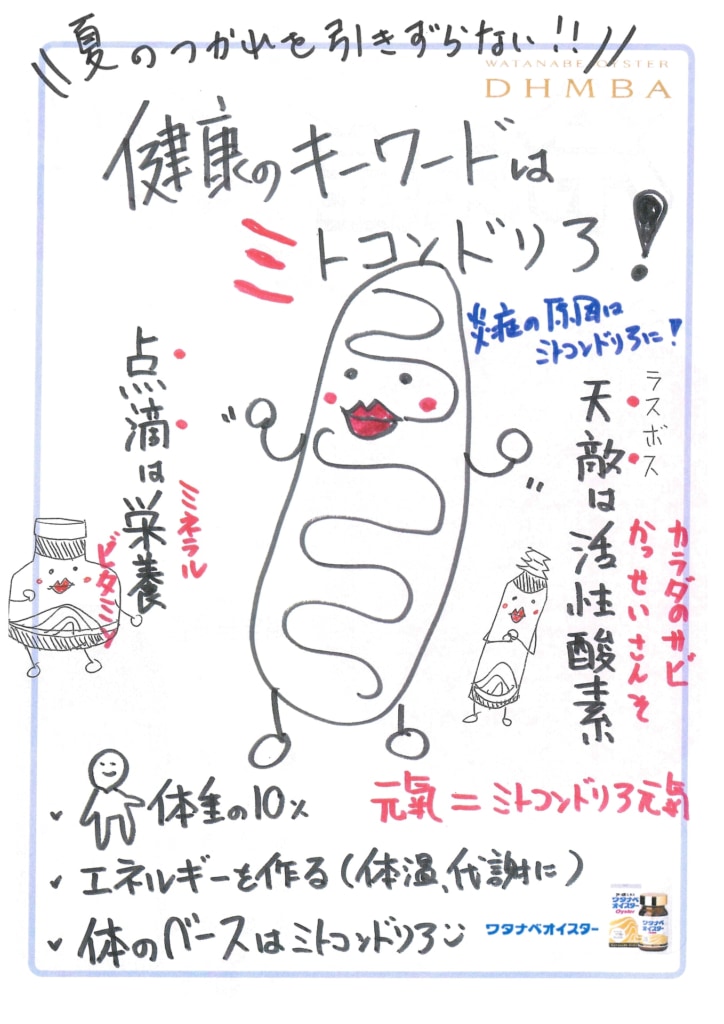 夏のつかれを引きずらない!!
WATANABE OYSTER
DHMBA
健康のキーワードは
ミトコンドリア!
炎症の原因は
ミトコンドリアに!
点滴は栄養
ミネラル
ビタミン
ラスボス
天敵は活性酸素
かっせいさんそ
カラダのサビ
体重の10%
元氣=ミトコンドリア元氣
エネルギーを作る(体温、代謝に)
体のベースはミトコンドリア
ワタナベオイスター
ワタナベ
オイスター
Oyster
ワタナベ
オイスター